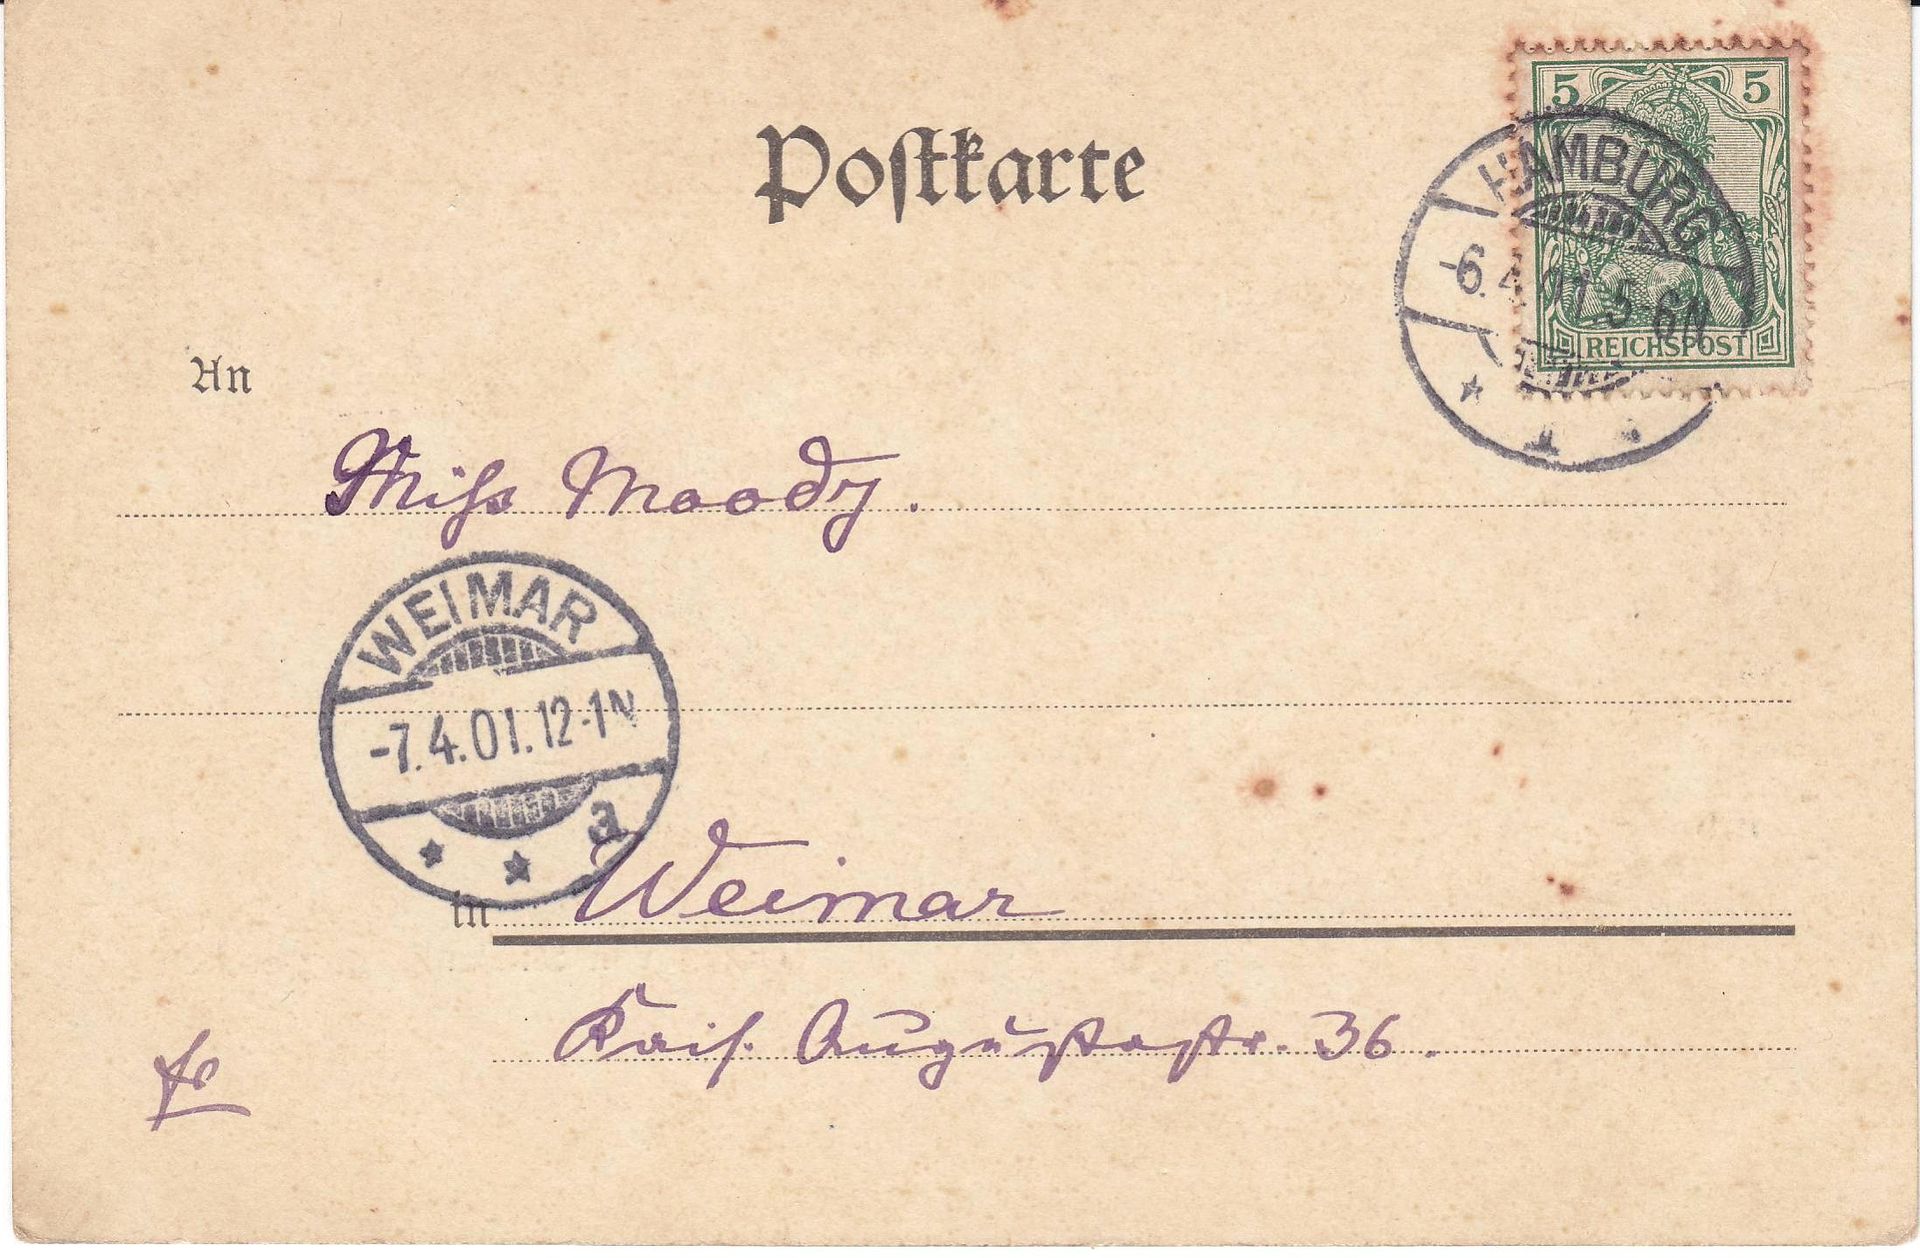 Postkarte
5 5
HAMBURG
-6.4.01.5-6N
REICHSPOST
1
An
Miss Moody.
WEIMAR
-7.4.01.12-1N
* * a
in Weimar
Kais. Augustastr. 36.